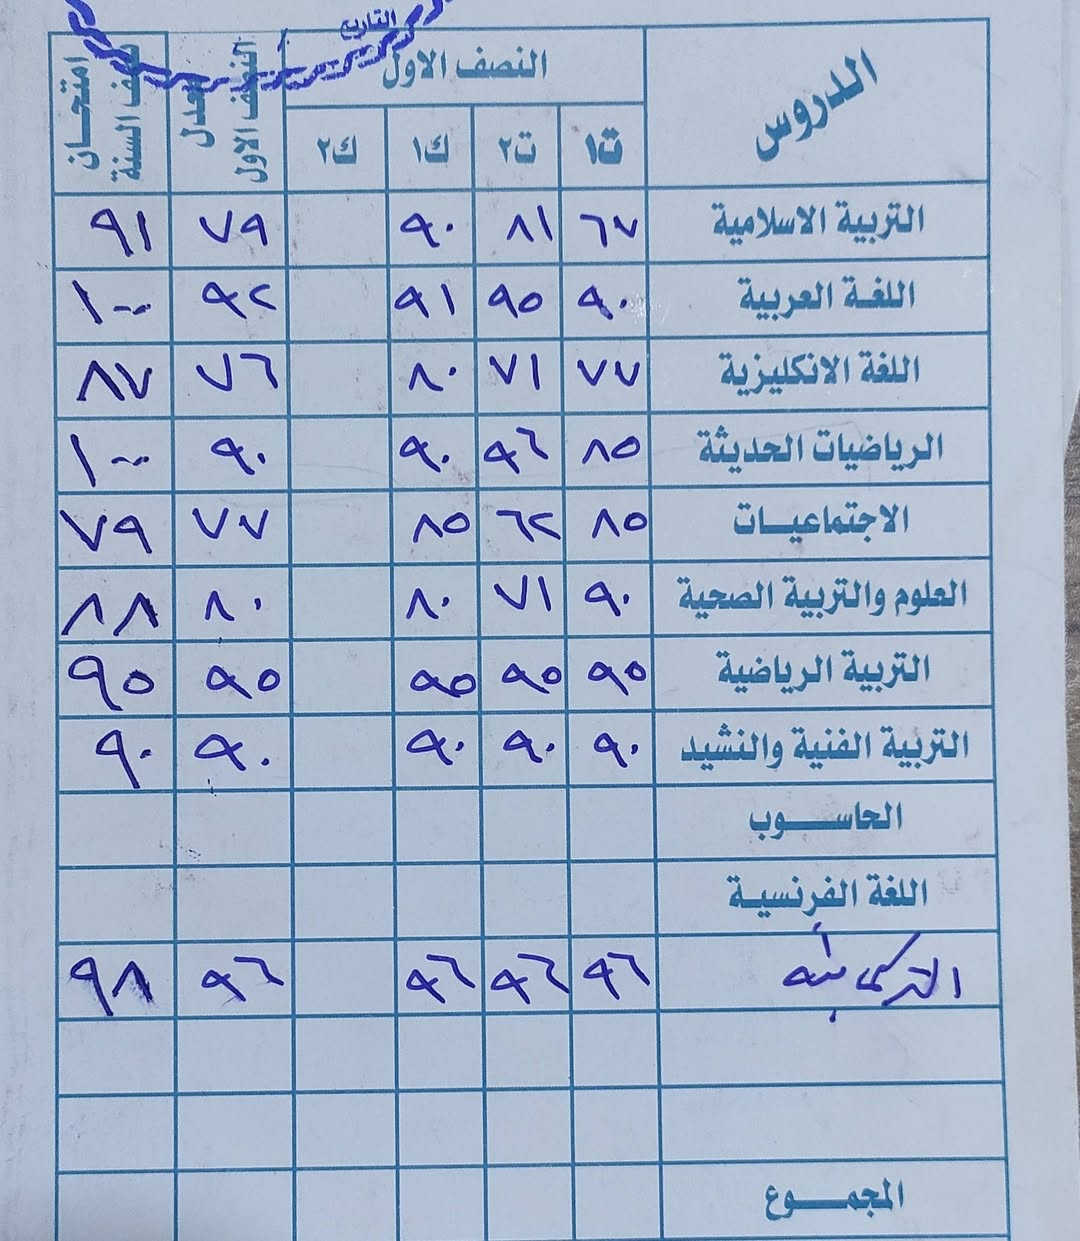 التاريخ
الدروس النصف الاول معدل النصف الاول امتحان نصف السنة
ت١ ت٢ ك١ ك٢
التربية الاسلامية ٦٧ ٨١ ٩٠ ٧٩ ٩١
اللغـة العربية ٩٠ ٩٥ ٩١ ٩٢ ١٠٠
اللغة الانكليزية ٧٧ ٧١ ٨٠ ٧٦ ٨٧
الرياضيات الحديثة ٨٥ ٩٦ ٩٠ ٩٠ ١٠٠
الاجتماعيــات ٨٥ ٦٢ ٨٥ ٧٧ ٧٩
العلوم والتربية الصحية ٩٠ ٧١ ٨٠ ٨٠ ٨٨
التربية الرياضية ٩٥ ٩٥ ٩٥ ٩٥ ٩٥
التربية الفنية والنشيد ٩٠ ٩٠ ٩٠ ٩٠ ٩٠
الحاســـوب
اللغة الفرنسيـة
التركمانية ٩٦ ٩٦ ٩٦ ٩٦ ٩٨
المجمـــوع